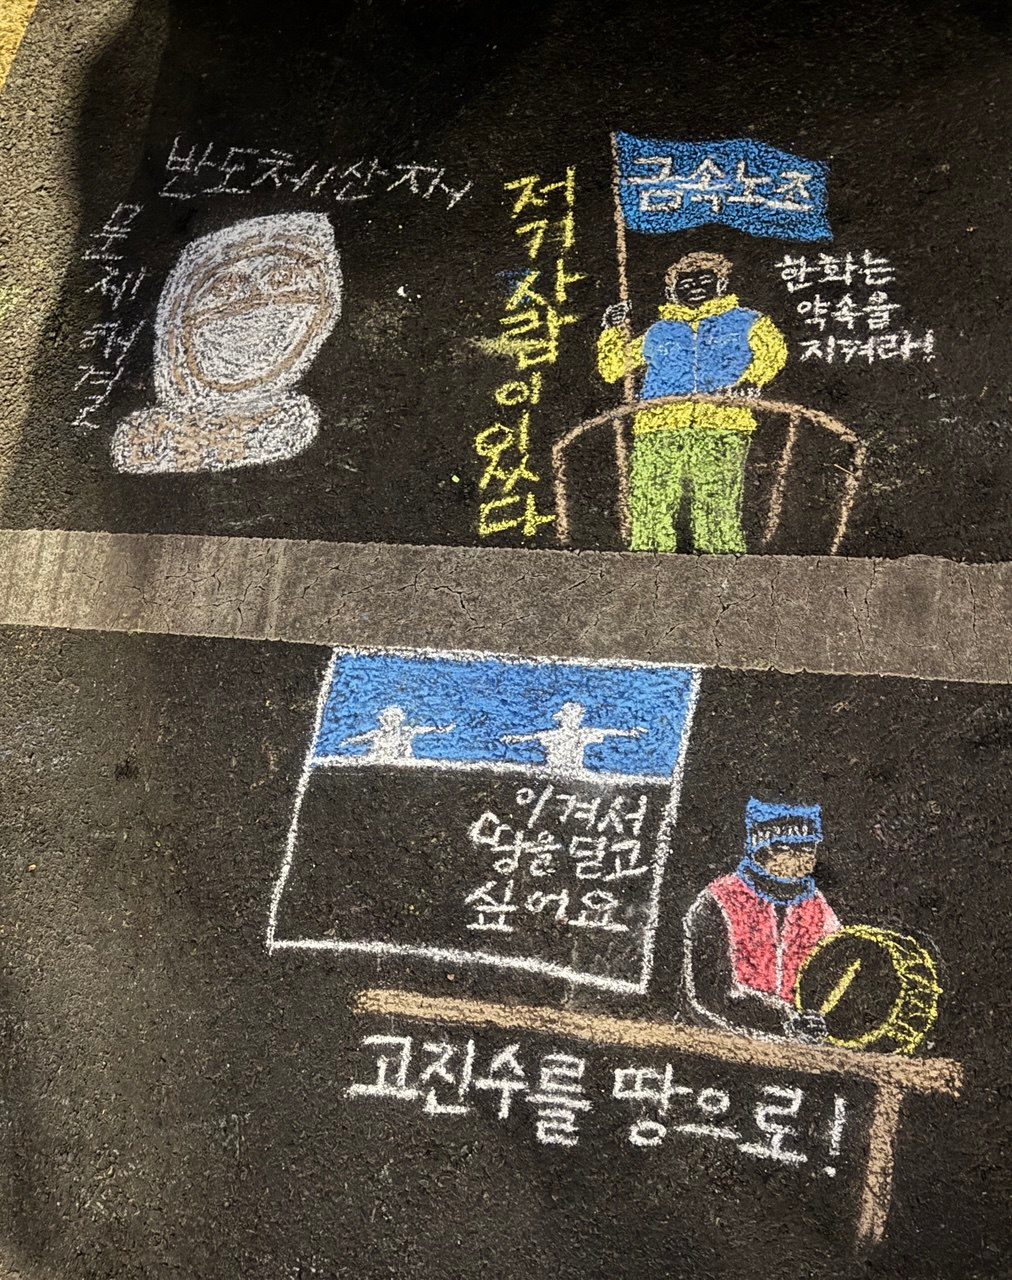 반도체산재
문제해결
저기 사람이 있다
금속노조
한화는
약속을
지켜라!
이겨서
땅을 딛고
싶어요
고진수를 땅으로!